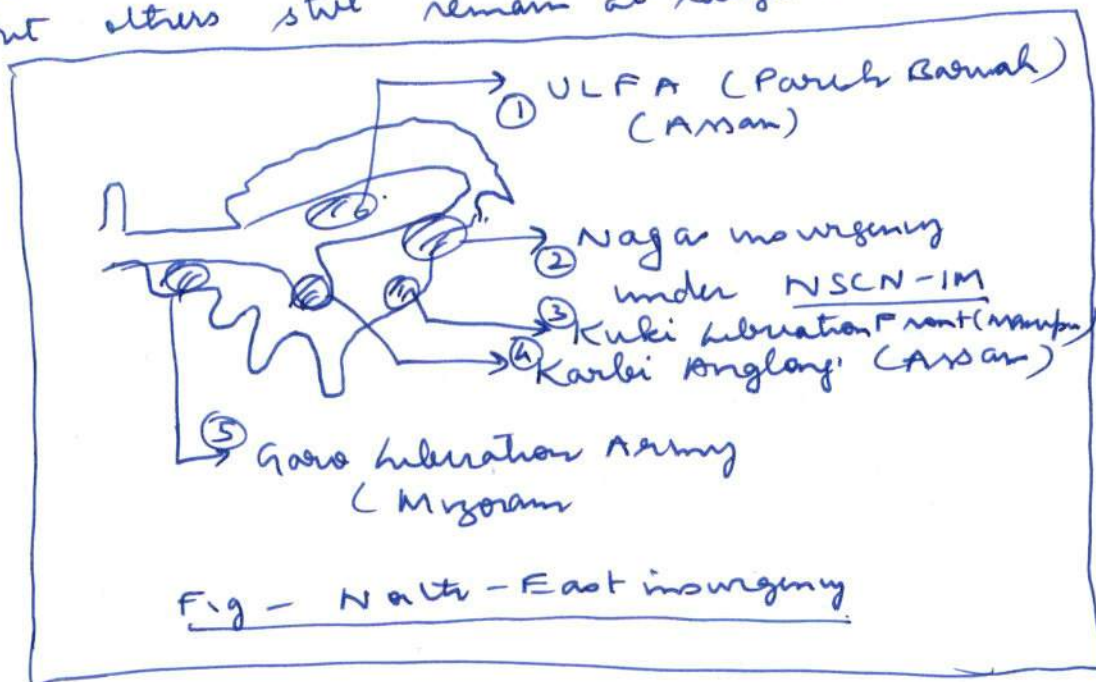 others still remain as
① ULFA (Paresh Baruah)
(Assam)
② Naga insurgency
under NSCN-IM
③ Kuki Liberation Front (Manipur)
④ Karbi Anglong (Assam)
⑤ Garo Liberation Army
(Mizoram
Fig - North-East insurgency